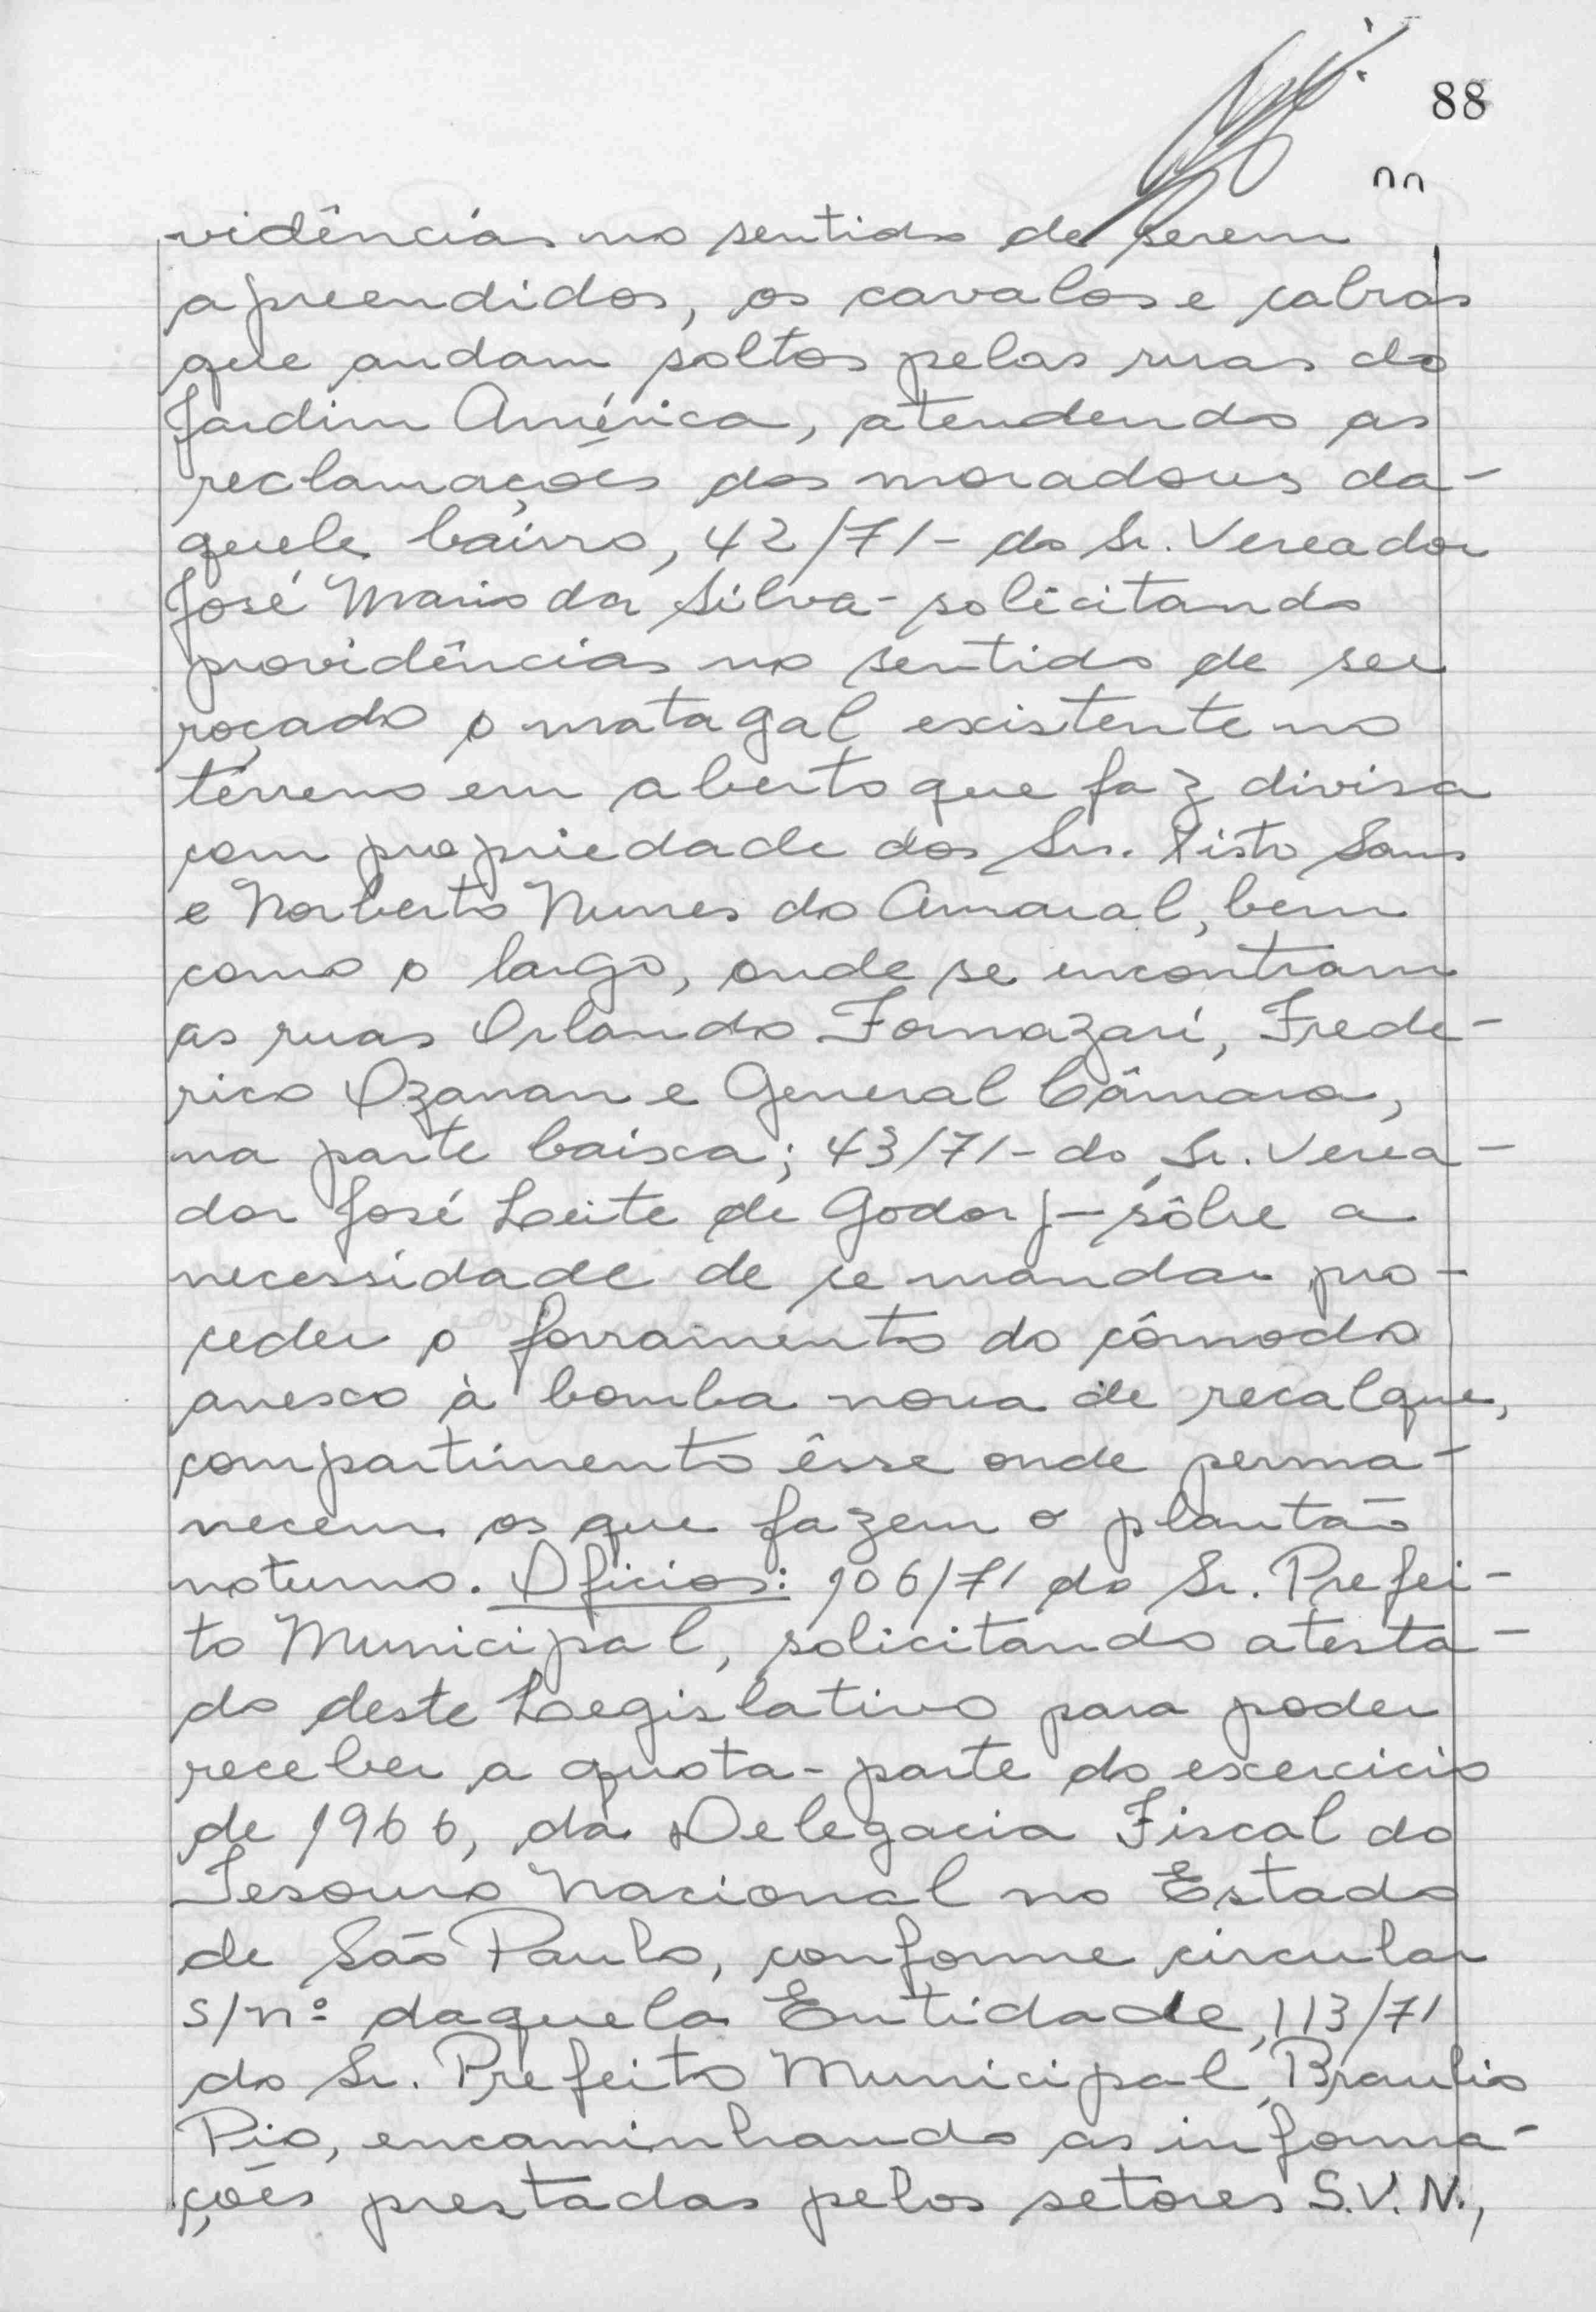 88
vidências no sentido de serem
apreendidos, os cavalos e cabras
que andam soltos pelas ruas do
Jardim América, atendendo as
reclamações dos moradores da-
quele bairro, 42/71- do Sr. Vereador
José Mario da Silva- solicitando
providências no sentido de ser
roçado o matagal existente no
terreno em aberto que faz divisa
com propriedade dos Srs. Xisto
e Norberto Nunes do Amaral, bem
como o largo, onde se encontram
as ruas Orlando Fornazari, Frede-
rico Ozanan e General Câmara,
na parte baixa; 43/71- do Sr. Verea-
dor José Leite de Godoy- sôbre a
necessidade de se mandar pro-
ceder o forramento do cômodo
anexo à bomba nova de recalque,
compartimento êsse onde perma-
necem os que fazem o plantão
noturno. Oficios: 106/71 do Sr. Prefei-
to Municipal, solicitando atesta-
do deste Legislativo para poder
receber a quota-parte do exercicio
de 1966, da Delegacia Fiscal do
Tesouro Nacional no Estado
de São Paulo, conforme circular
s/nº daquela Entidade, 113/71
do Sr. Prefeito Municipal, Braulio
Pio, encaminhando as informa-
ções prestadas pelos setores S.V.N.,